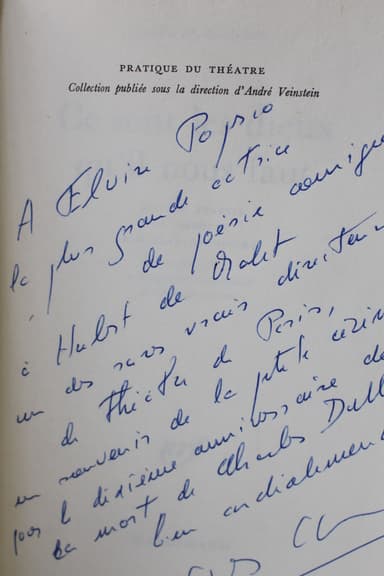 PRATIQUE DU THÉATRE
Collection publiée sous la direction d'André Veinstein
A Elvire Popsco
la plus grande actrice
de poésie comique
à Hubert de Malet
un des rares vrais directeurs
de théâtre de Paris,
en souvenir de la petite
pour le dixième anniversaire de
la mort de Charles Dull
bien cordialement